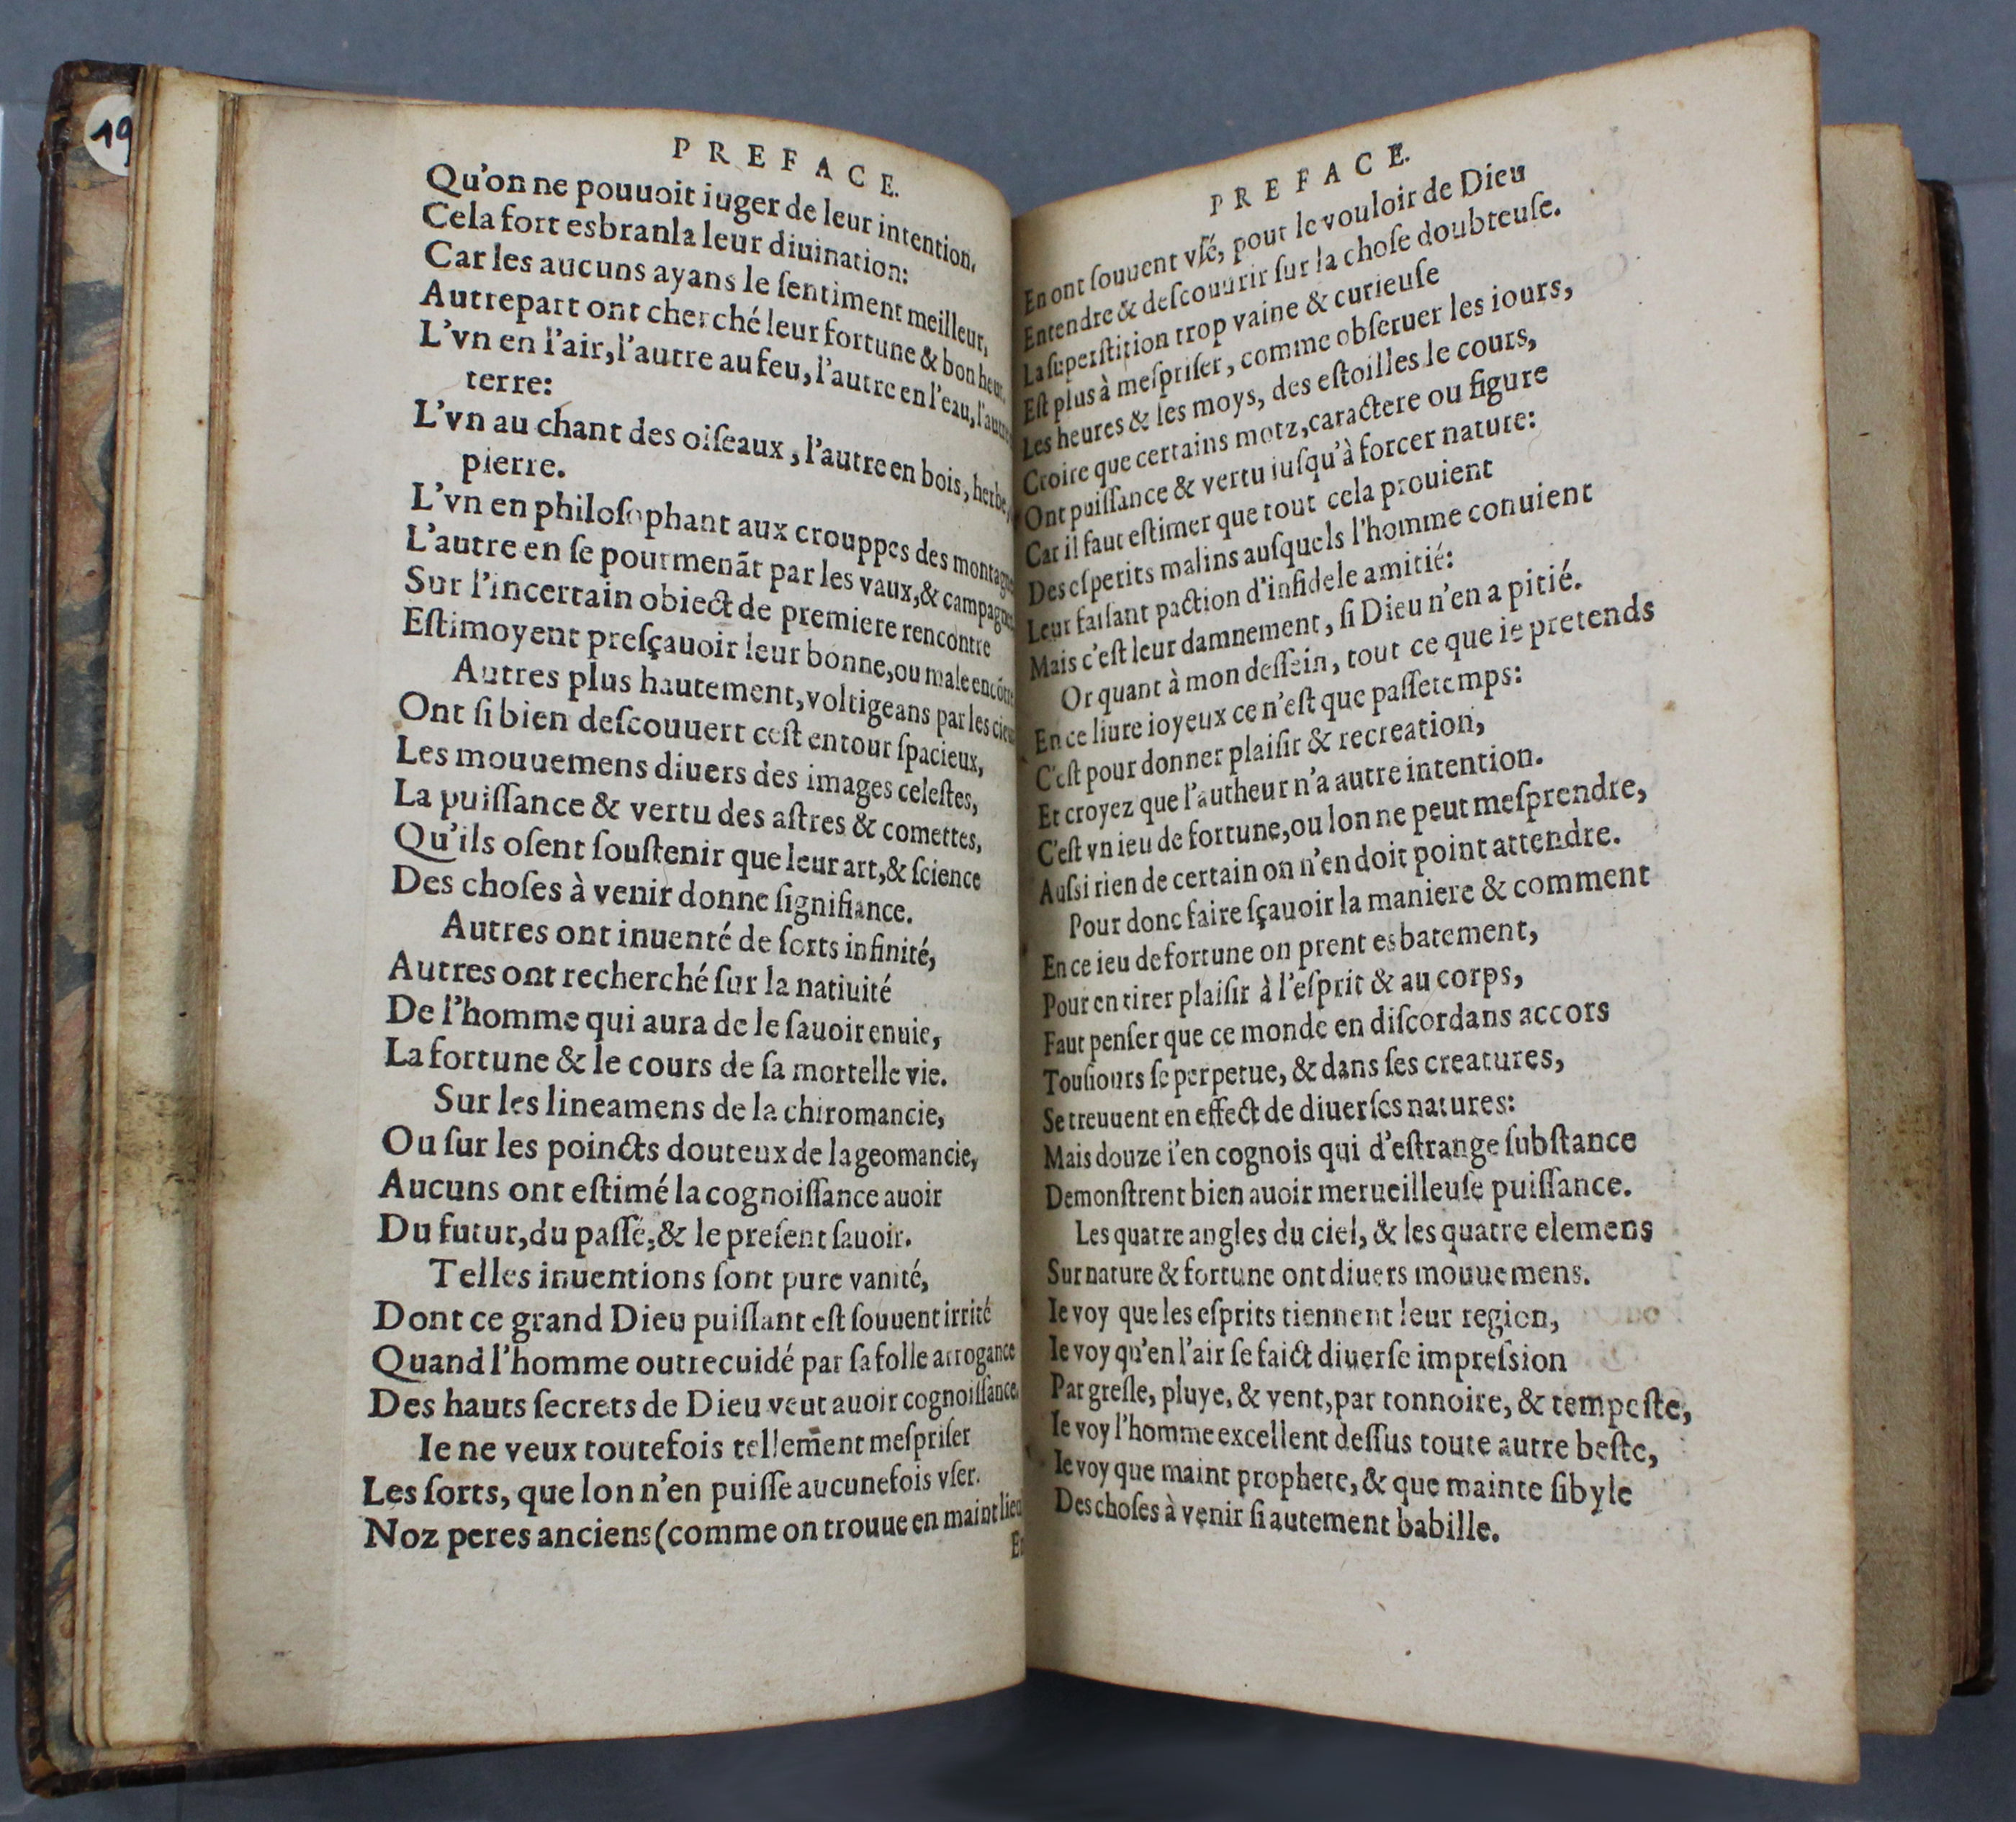 19
PREFACE.
Qu'on ne pouuoit iuger de leur intention,
Cela fort esbranla leur diuination:
Car les aucuns ayans le ſentiment meilleur,
Autrepart ont cherché leur fortune & bon heur,
L'vn en l'air, l'autre au feu, l'autre en l'eau, l'autre
terre:
L'vn au chant des oiſeaux, l'autre en bois, herbe,
pierre.
L'vn en philoſophant aux crouppes des montagnes
L'autre en ſe pourmenãt par les vaux, & campagnes
Sur l'incertain obiect de premiere rencontre
Eſtimoyent preſçauoir leur bonne, ou male encõtre
Autres plus hautement, voltigeans par les cieux
Ont ſi bien deſcouuert ceſt entour ſpacieux,
Les mouuemens diuers des images celeſtes,
La puiſſance & vertu des aſtres & comettes,
Qu'ils oſent ſouſtenir que leur art, & ſcience
Des choſes à venir donne ſignifiance.
Autres ont inuenté de ſorts infinité,
Autres ont recherché ſur la natiuité
De l'homme qui aura de le ſauoir enuie,
La fortune & le cours de ſa mortelle vie.
Sur les lineamens de la chiromancie,
Ou ſur les poincts douteux de la geomancie,
Aucuns ont eſtimé la cognoiſſance auoir
Du futur, du paſſé, & le preſent ſauoir.
Telles inuentions ſont pure vanité,
Dont ce grand Dieu puiſſant eſt ſouuent irrité
Quand l'homme outrecuidé par ſa folle arrogance
Des hauts ſecrets de Dieu veut auoir cognoiſſance.
Ie ne veux toutefois tellem̃ent meſpriſer
Les ſorts, que lon n'en puiſſe aucunefois vſer.
Noz peres anciens (comme on trouue en maint lieu
En
PREFACE.
En ont ſouuent vſé, pour le vouloir de Dieu
Entendre & deſcouurir ſur la choſe doubteuſe.
La ſuperſtition trop vaine & curieuſe
Eſt plus à meſpriſer, comme obſeruer les iours,
Les heures & les moys, des eſtoilles le cours,
Croire que certains motz, caractere ou figure
Ont puiſſance & vertu iuſqu'à forcer nature:
Car il faut eſtimer que tout cela prouient
Des eſperits malins auſquels l'homme conuient
Leur faiſant paction d'infidele amitié:
Mais c'eſt leur damnement, ſi Dieu n'en a pitié.
Or quant à mon deſſein, tout ce que ie pretends
En ce liure ioyeux ce n'eſt que paſſetemps:
C'eſt pour donner plaiſir & recreation,
Et croyez que l'autheur n'a autre intention.
C'eſt vn ieu de fortune, ou lon ne peut meſprendre,
Auſsi rien de certain on n'en doit point attendre.
Pour donc faire ſçauoir la maniere & comment
En ce ieu de fortune on prent esbatement,
Pour en tirer plaiſir à l'eſprit & au corps,
Faut penſer que ce monde en diſcordans accors
Touſiours ſe perpetue, & dans ſes creatures,
Se treuuent en effect de diuerſes natures:
Mais douze i'en cognois qui d'eſtrange ſubſtance
Demonſtrent bien auoir merueilleuſe puiſſance.
Les quatre angles du ciel, & les quatre elemens
Sur nature & fortune ont diuers mouuemens.
Ie voy que les eſprits tiennent leur region,
Ie voy qu'en l'air ſe faict diuerſe impreſsion
Par greſle, pluye, & vent, par tonnoire, & tempeſte,
Ie voy l'homme excellent deſſus toute autre beſte,
Ie voy que maint prophete, & que mainte ſibyle
Des choſes à venir ſi autement babille.